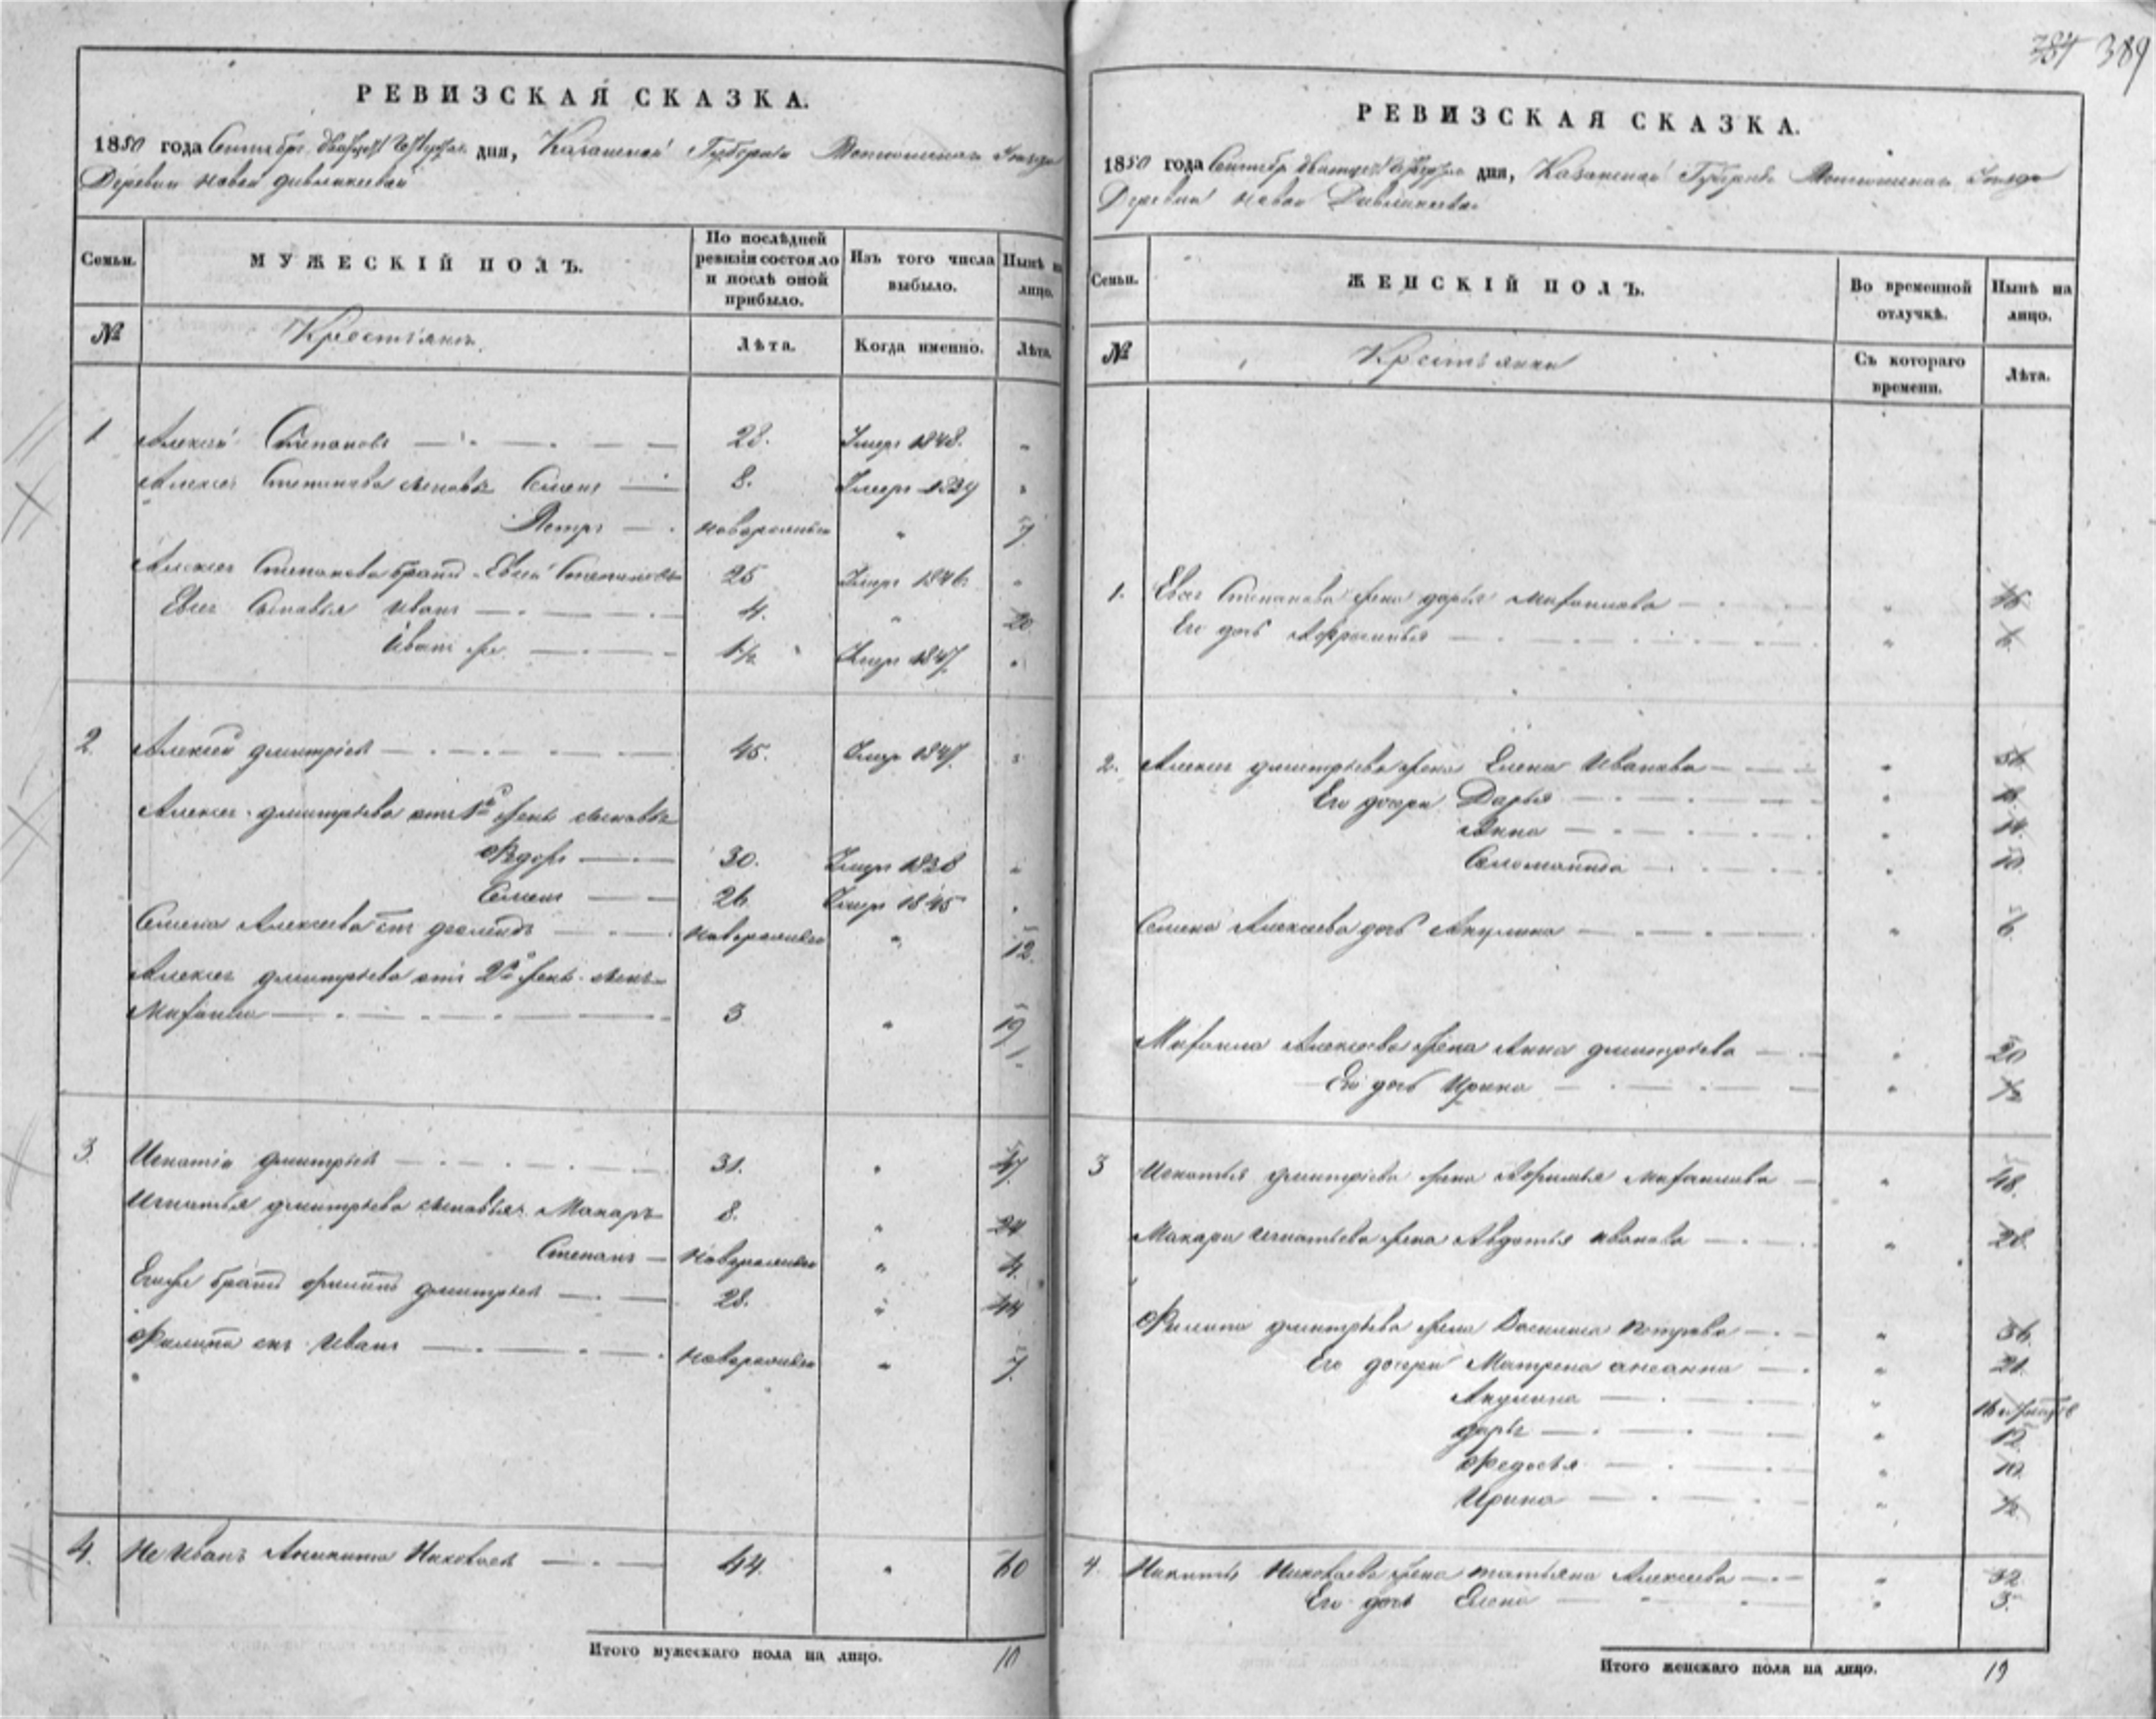 384 389
РЕВИЗСКАЯ СКАЗКА.
1850 года Сентября дня, Казанской Губернии Уезда
Деревни Новой
Семьи.
МУЖЕСКІЙ ПОЛЪ.
По послѣдней ревизіи состояло и послѣ оной прибыло.
Изъ того числа выбыло.
Нынѣ на лицо.
№
Крестьянъ
Лѣта.
Когда именно.
Лѣта.
1 Алексей Степановъ 28. Умеръ 1848. "
Алексея Степанова сыновья Семенъ 8. Умеръ 1839 "
Петръ новорожденъ " 7
Алексея Степанова братъ Евсей Степановъ 25 Умеръ 1846. "
Евсея сыновья Иванъ 4. " 20
Иванъ же 1½ Умеръ 1847 "
2. Алексей Дмитріевъ 45. Умеръ 1847. "
Алексея Дмитріева отъ 1й жены сыновья
Федоръ 30. Умеръ 1838 "
Семенъ 26. Умеръ 1845 "
Семена Алексеева сынъ новорожденъ " 12.
Алексея Дмитріева отъ 2й жены сынъ
Михаила 3 " 19
3. Игнатій Дмитріевъ 31. " 47
Игнатья Дмитріева сыновья Макаръ 8. " 24
Степанъ новорожденъ " 4.
Его же братъ Филипъ Дмитріевъ 28. " 44
Филипа сынъ Иванъ новорожденъ " 7.
4. Не Иванъ Аникита 44. " 60
Итого мужескаго пола на лицо. 10
РЕВИЗСКАЯ СКАЗКА.
1850 года Сентября дня, Казанской Губерніи Уезда
Деревни Новой
Семьи.
ЖЕНСКІЙ ПОЛЪ.
Во временной отлучкѣ.
Нынѣ на лицо.
№
Крестьянки
Съ котораго времени.
Лѣта.
1. Евсея Степанова жена Дарья Михайлова "
Его дочь Афросинья " 6.
2. Алексея Дмитріева жена Елена Иванова "
Его дочери Дарья " 18.
Анна " 14.
Соломонида " 10.
Семена Алексеева дочь Акулина " 6
Михаила Алексеева жена Анна Дмитріева " 20
Его дочь Ирина " ½
3 Игнатья Дмитріева жена Афимья Михайлова " 48.
Макара Игнатьева жена Авдотья Иванова " 28.
Филипа Дмитріева жена Василиса Петрова " 36.
Его дочери Матрена " 21.
Акулина "
Дарья " 12
Федосья " 10.
Ирина " ½
4. Никиты жена Татьяна Алексеева " 32
Его дочь Елена " 3.
Итого женскаго пола на лицо. 19